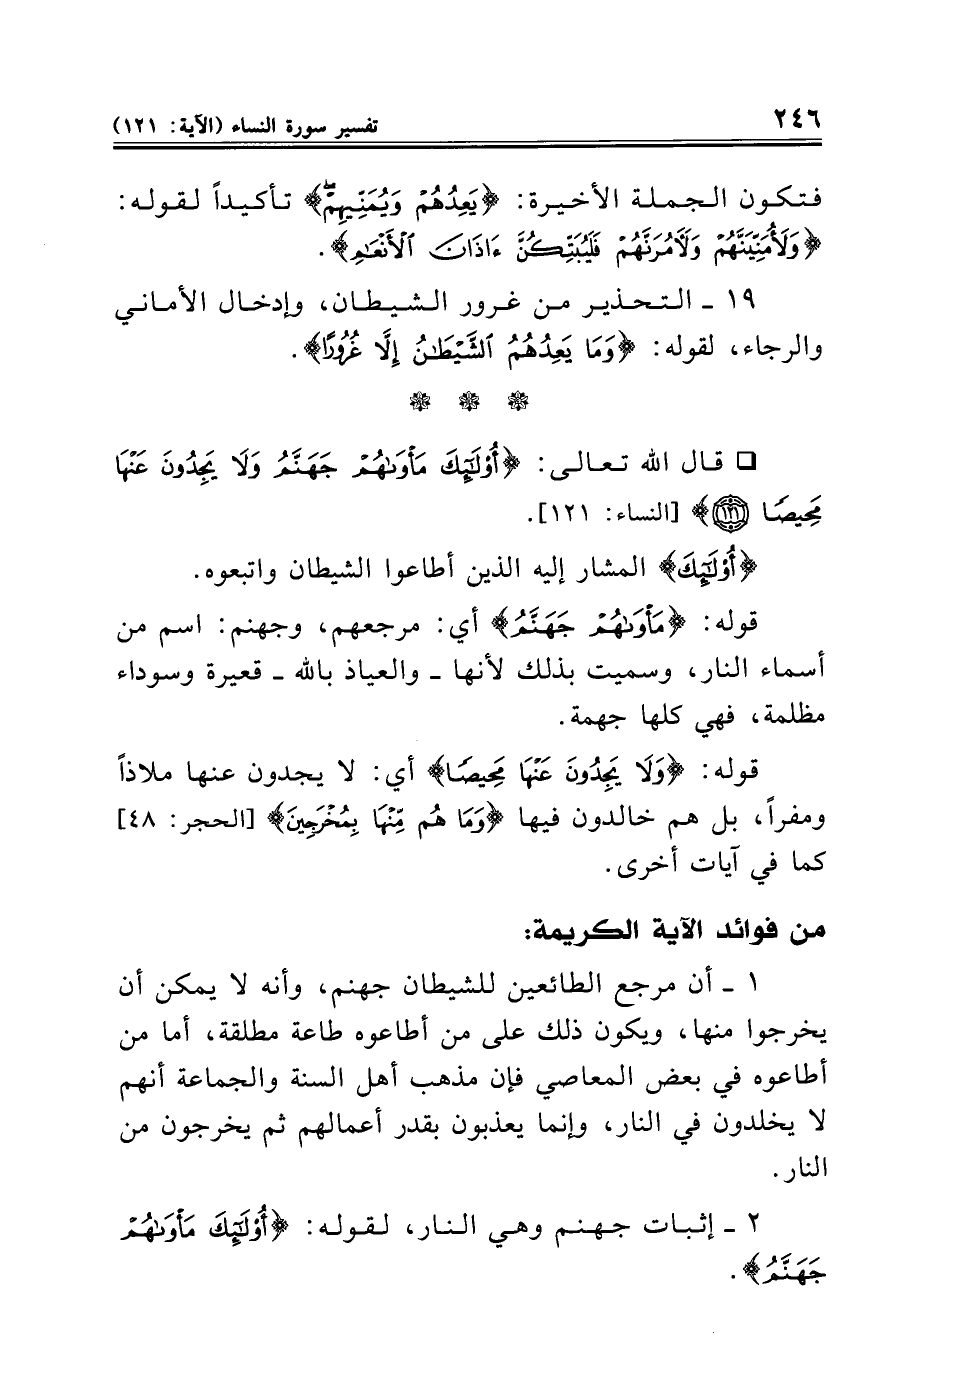 ٢٤٦
تفسير سورة النساء (الآية: ١٢١)
فتكون الجملة الأخيرة: ﴿يَعِدُهُمْ وَيُمَنِّيهِمْۖ﴾ تأكيداً لقوله:
﴿وَلَأُمَنِّيَنَّهُمْ وَلَآمُرَنَّهُمْ فَلَيُبَتِّكُنَّ ءَاذَانَ ٱلْأَنْعَٰمِ﴾.
١٩ ـ التحذير من غرور الشيطان، وإدخال الأماني
والرجاء، لقوله: ﴿وَمَا يَعِدُهُمُ ٱلشَّيْطَٰنُ إِلَّا غُرُورًا﴾.
❁ ❁ ❁
❑ قال الله تعالى: ﴿أُوْلَٰٓئِكَ مَأْوَىٰهُمْ جَهَنَّمُ وَلَا يَجِدُونَ عَنْهَا
مَحِيصًا ١٢١﴾ [النساء: ١٢١].
﴿أُوْلَٰٓئِكَ﴾ المشار إليه الذين أطاعوا الشيطان واتبعوه.
قوله: ﴿مَأْوَىٰهُمْ جَهَنَّمُ﴾ أي: مرجعهم، وجهنم: اسم من
أسماء النار، وسميت بذلك لأنها ـ والعياذ بالله ـ قعيرة وسوداء
مظلمة، فهي كلها جهمة.
قوله: ﴿وَلَا يَجِدُونَ عَنْهَا مَحِيصًا﴾ أي: لا يجدون عنها ملاذاً
ومفراً، بل هم خالدون فيها ﴿وَمَا هُم مِّنْهَا بِمُخْرَجِينَ﴾ [الحجر: ٤٨]
كما في آيات أخرى.
من فوائد الآية الكريمة:
١ ـ أن مرجع الطائعين للشيطان جهنم، وأنه لا يمكن أن
يخرجوا منها، ويكون ذلك على من أطاعوه طاعة مطلقة، أما من
أطاعوه في بعض المعاصي فإن مذهب أهل السنة والجماعة أنهم
لا يخلدون في النار، وإنما يعذبون بقدر أعمالهم ثم يخرجون من
النار.
٢ ـ إثبات جهنم وهي النار، لقوله: ﴿أُوْلَٰٓئِكَ مَأْوَىٰهُمْ
جَهَنَّمُ﴾.